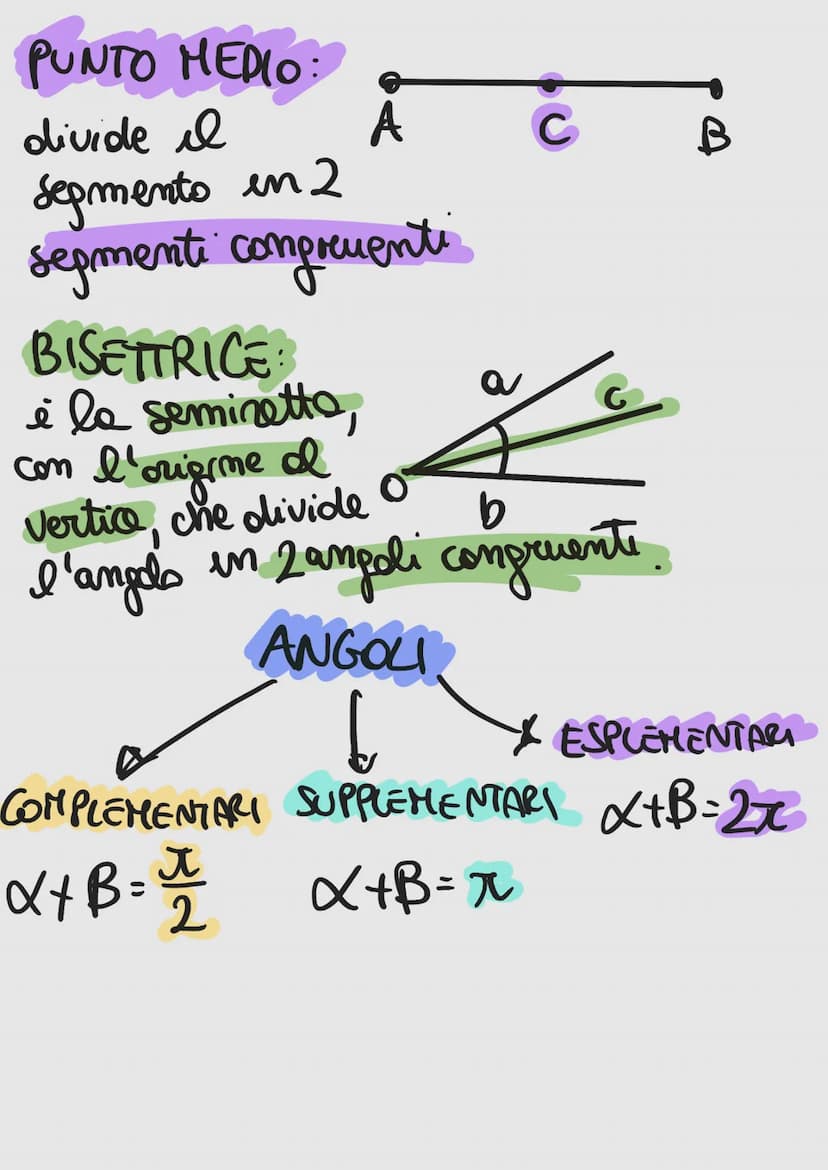 PUNTO MEDIO:
A C B
divide il
segmento in 2
segmenti congruenti
BISETTRICE:
è la semiretta,
con l'origine al
vertice, che divide
l'angolo in 2 angoli congruenti.
a
c
O
b
ANGOLI
ESPLEMENTARI
α+B=2π
COMPLEMENTARI
α+B=π/2
SUPPLEMENTARI
α+B=π